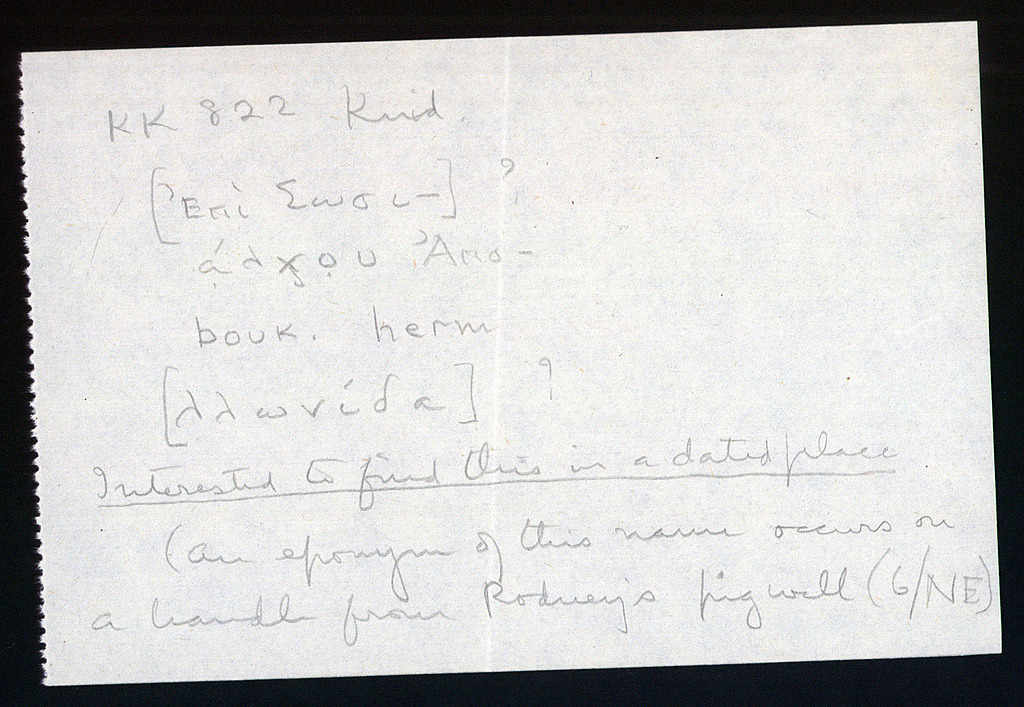 KK 822 Knid.
[Ἐπὶ Σωσι-] ?
ά̣λχ̣ο̣υ Ἀπο-
bouk. herm
[λλωνίδα] ?
Interested to find this in a dated place
(an eponym of this name occurs on
a handle from Rodney's pig well (6/NE)